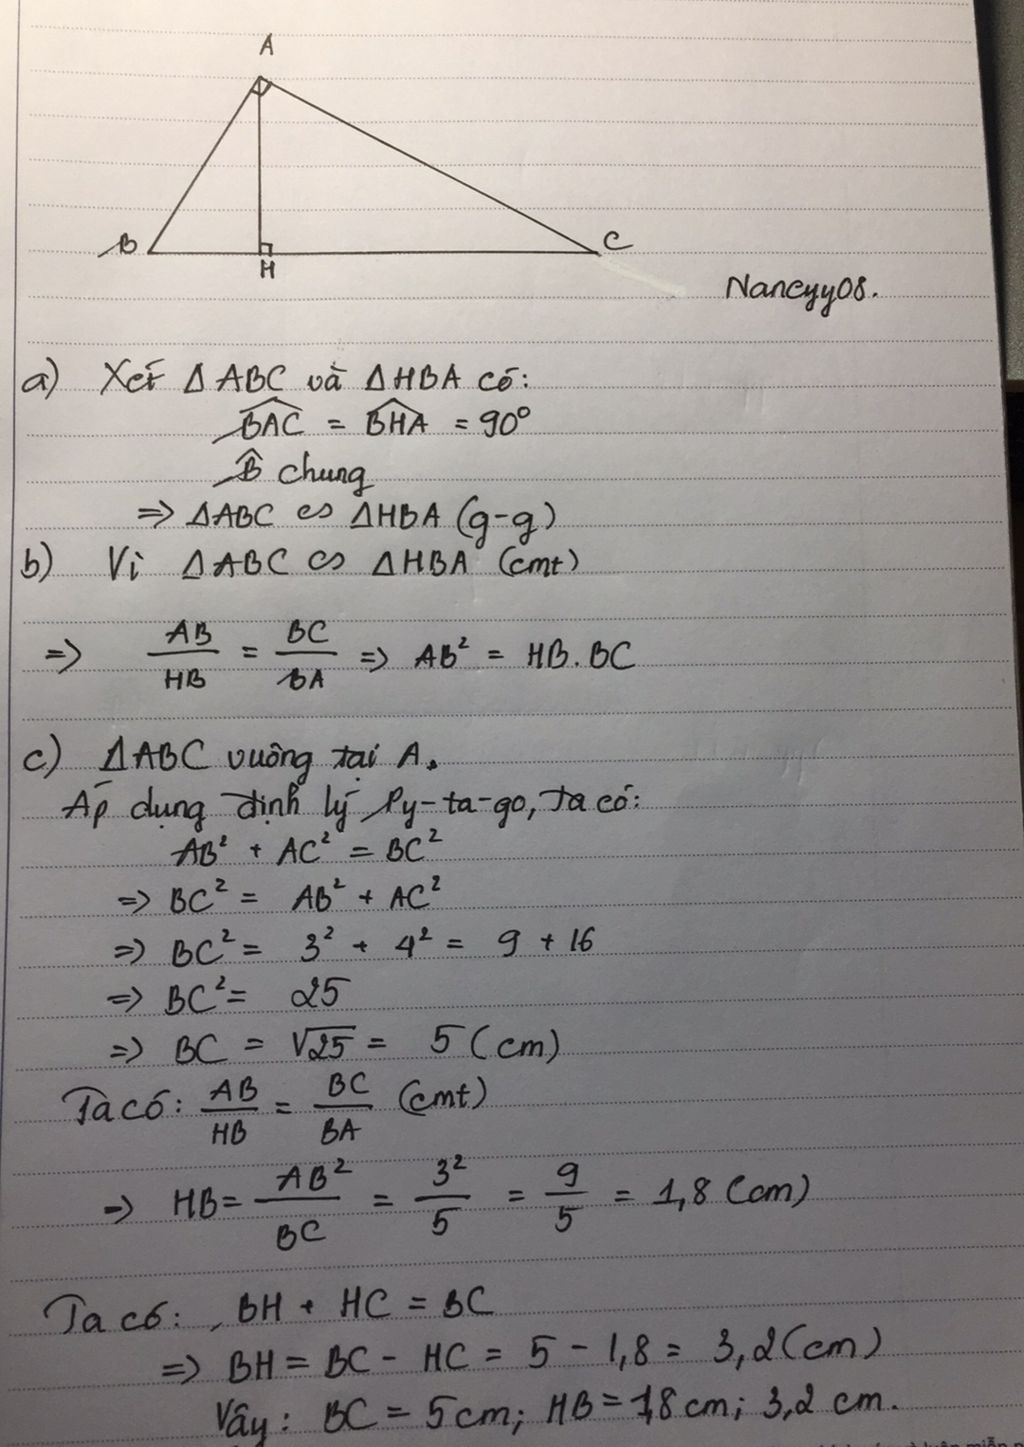 A
B
H
C
Nancyy08.
a) Xét ΔABC và ΔHBA có:
BAC = BHA = 90°
B̂ chung
=> ΔABC ∽ ΔHBA (g-g)
b) Vì ΔABC ∽ ΔHBA (cmt)
=> AB/HB = BC/BA => AB² = HB.BC
c) ΔABC vuông tại A.
Áp dụng định lý Py-ta-go, ta có:
AB² + AC² = BC²
=> BC² = AB² + AC²
=> BC² = 3² + 4² = 9 + 16
=> BC² = 25
=> BC = √25 = 5 (cm)
Ta có: AB/HB = BC/BA (cmt)
=> HB = AB²/BC = 3²/5 = 9/5 = 1,8 (cm)
Ta có: BH + HC = BC
=> BH = BC - HC = 5 - 1,8 = 3,2 (cm)
Vậy: BC = 5cm; HB = 1,8 cm; 3,2 cm.